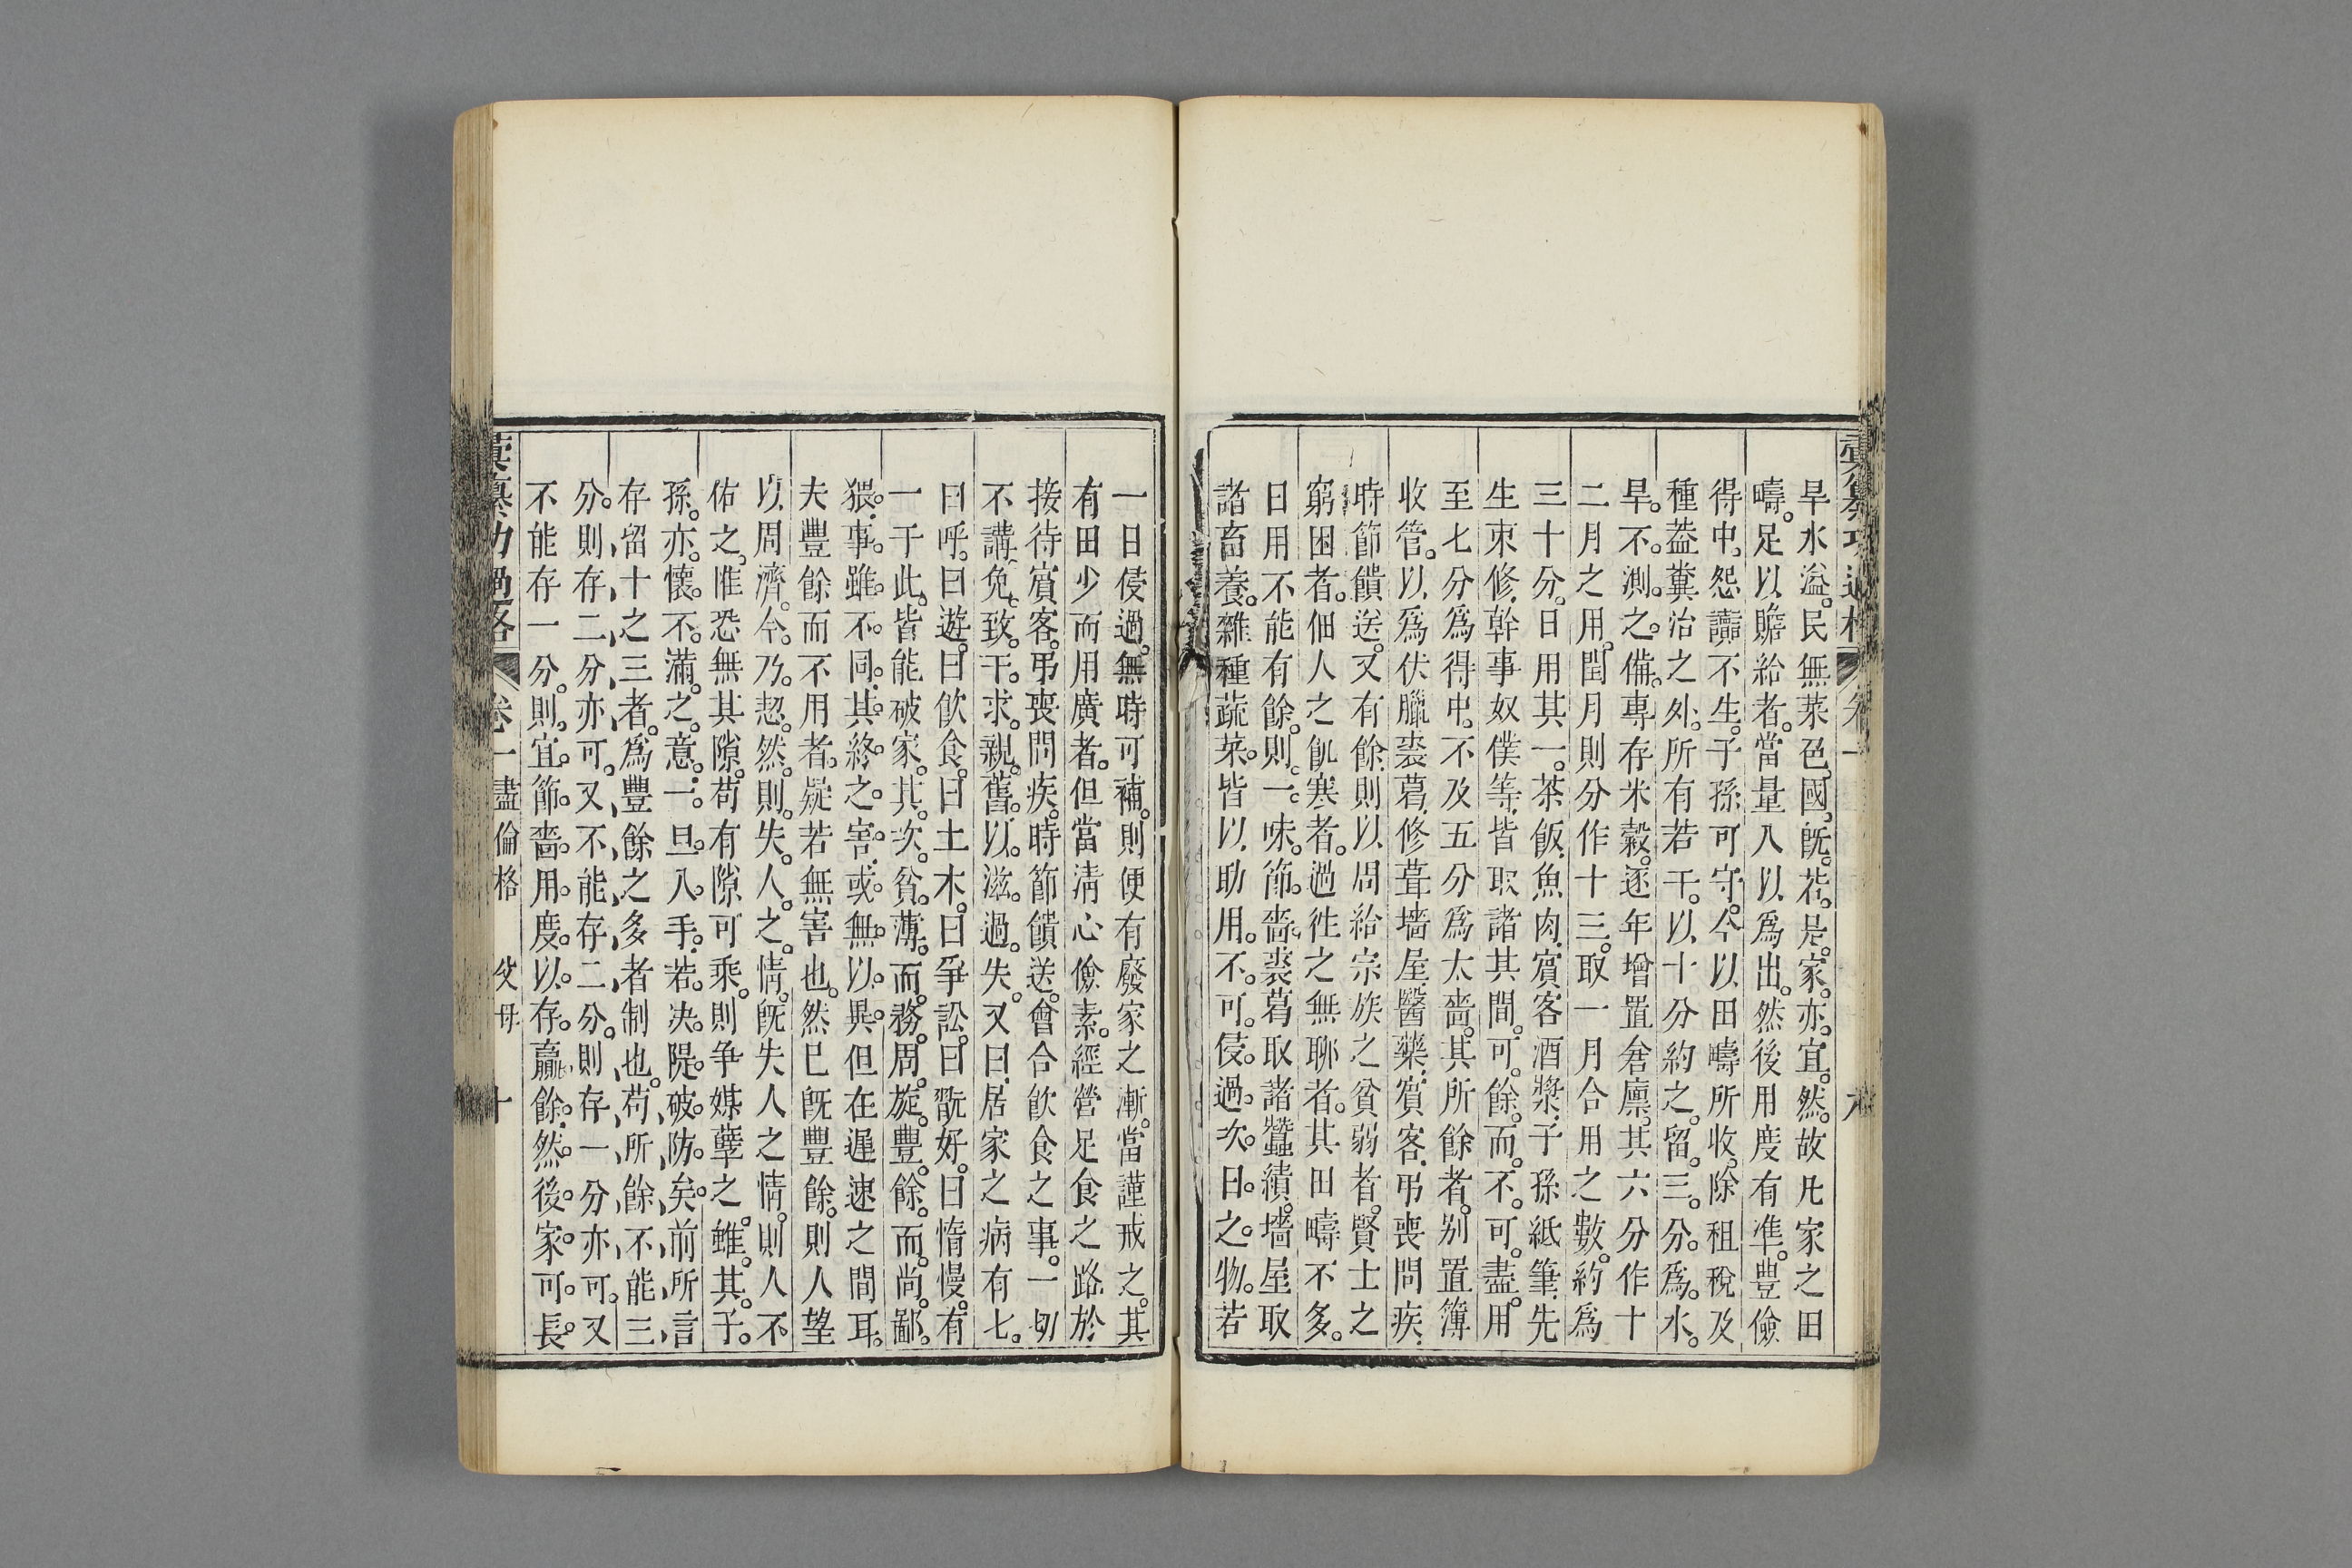 旱水溢。民無菜色。國既若是。家亦宜然。故凡家之田
疇。足以贍給者。當量入以爲出。然後用度有準。豐儉
得中。怨讟不生。子孫可守。今以田疇所收。除租稅及
種蓋糞治之外。所有若干。以十分約之。留三分爲水
旱不測之備。專存米穀。逐年增置倉廩。其六分作十
二月之用。閏月則分作十三。取一月合用之數。約爲
三十分。日用其一。茶飯魚肉賓客酒漿。子孫紙筆先
生束修。幹事奴僕等。皆取諸其間。可餘而不可盡。用
至七分爲得中。不及五分爲太嗇。其所餘者。別置簿
收管。以爲伏臘裘葛。修葺墻屋。醫藥賓客。弔喪問疾
時節饋送。又有餘。則以周給宗族之貧弱者。賢士之
窮困者。佃人之飢寒者。過往之無聊者。其田疇不多。
日用不能有餘。則一味節嗇。裘葛取諸蠶績。墻屋取
諸畜養。雜種蔬菜。皆以助用。不可侵過次日之物。若
一日侵過。無時可補。則便有廢家之漸。當謹戒之。其
有田少而用廣者。但當淸心儉素。經營足食之路。於
接待賓客。弔喪問疾。時節饋送。會合飮食之事。一切
不講。免致干求親舊。以滋過失。又曰居家之病有七。
曰呼。曰遊。曰飮食。曰土木。曰爭訟。曰翫好。曰惰慢。有
一于此。皆能破家。其次貧薄而務周旋。豐餘而尚鄙
猥。事雖不同。其終之害。或無以異。但在遲速之間耳。
夫豐餘而不用者。疑若無害也。然已既豐餘。則人望
以周濟。今乃恝然。則失人之情。既失人之情。則人不
佑之。惟恐無其隙。苟有隙可乘。則爭媒孽之。雖其子
孫亦懷不滿之意。一旦入手。若決隄破防矣。前所言
存留十之三者。爲豐餘之多者制也。苟所餘不能三
分。則存二分亦可。又不能存二分。則存一分亦可。又
不能存一分。則宜節嗇用度。以存贏餘。然後家可長
彙纂功過格 卷一 盡倫格 父母 十